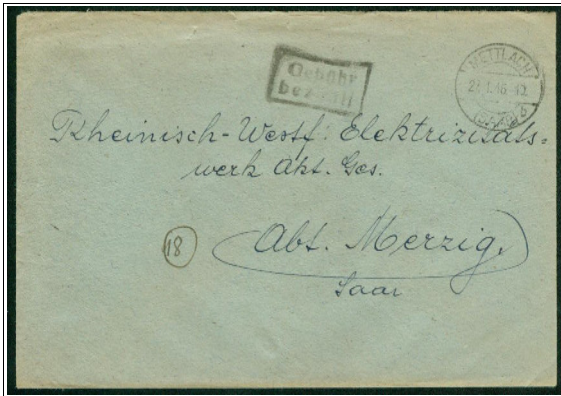 Gebühr
bezahlt
METTLACH
(SAAR)
Rheinisch-Westf. Elektrizitäts-
werk Akt. Ges.
18
Abt. Merzig.
Saar